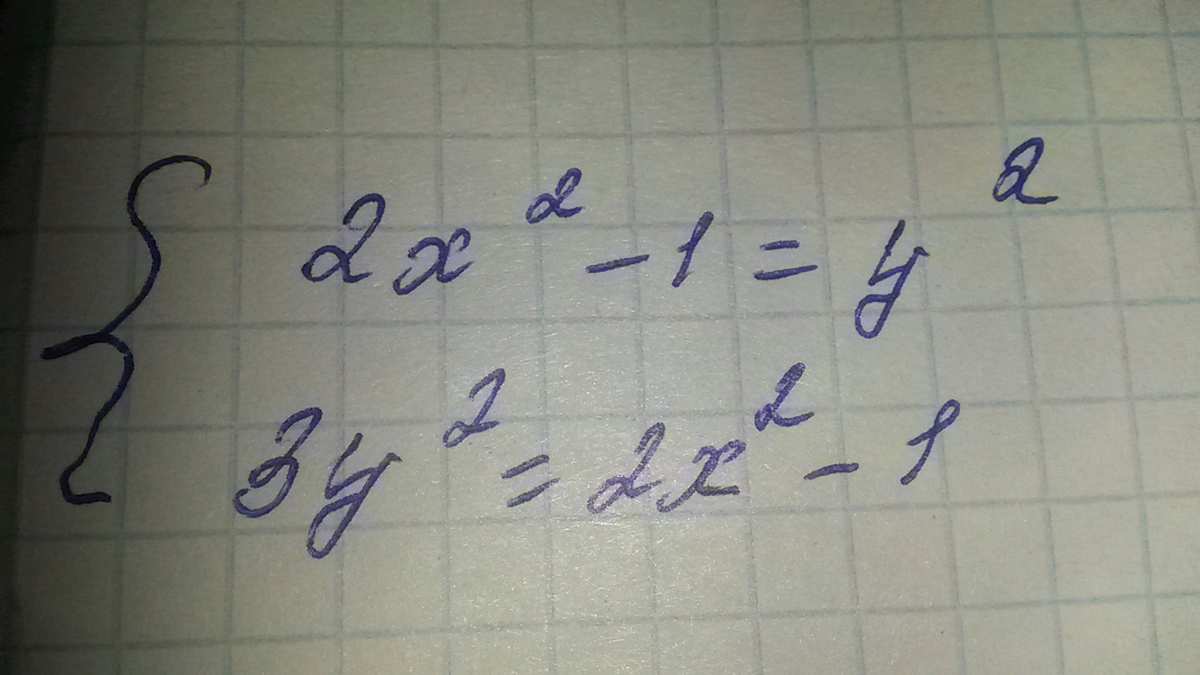 2x² - 1 = y²
3y² = 2x² - 1